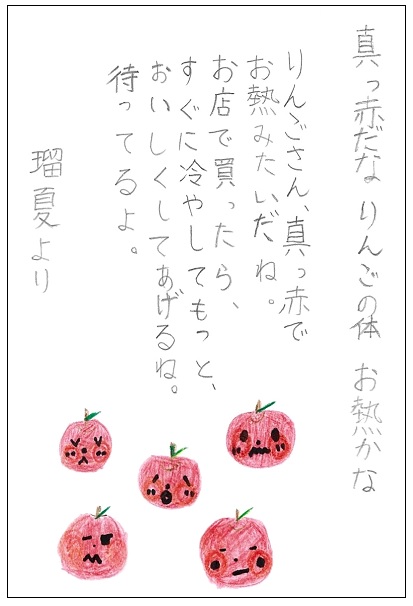 真っ赤だな りんごの体 お熱かな
りんごさん、真っ赤で
お熱みたいだね。
お店で買ったら、
すぐに冷やしてもっと、
おいしくしてあげるね。
待ってるよ。
瑠夏より